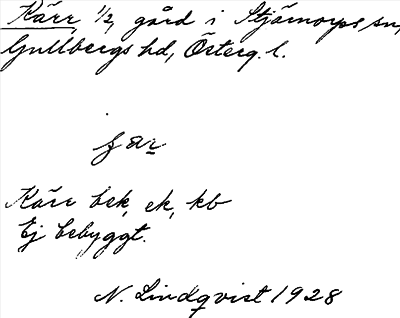 Kärr, 1/2, gård i Stjärnorps sn,
Gullbergs hd, Österg. l.
Kärr bek, ek, kb
Ej bebyggt.
N. Lindqvist 1928